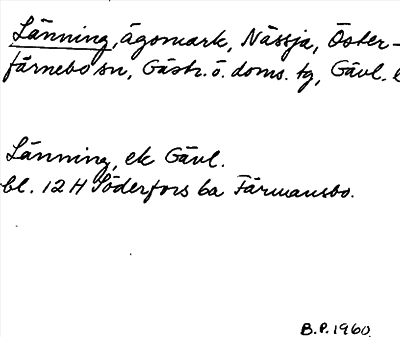 Länning, ägomark, Nässja, Öster-
färnebo sn, Gästr. ö. doms. tg, Gävl. l
Länning, ek Gävl.
bl. 12 H Söderfors ba Färmansbo.
B.P. 1960